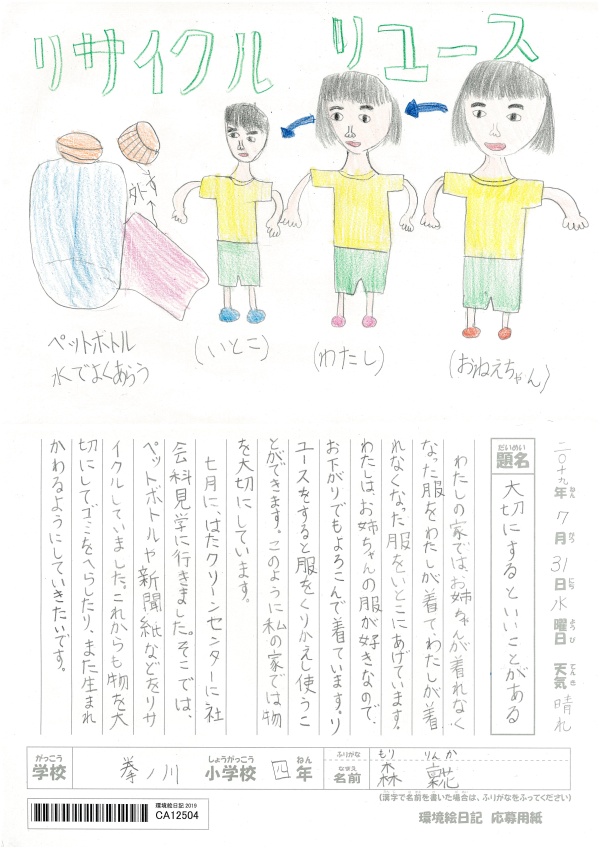 リサイクル
リユース
外す
ペットボトル
水でよくあらう
(いとこ)
(わたし)
(おねえちゃん)
二〇十九年 7月31日 水曜日 天気 晴れ
ねん がつ にち ようび てんき
だいめい
題名
大切にするといいことがある
わたしの家では、お姉ちゃんが着れなく
なった服をわたしが着て、わたしが着
れなくなった服をいとこにあげています。
わたしは、お姉ちゃんの服が好きなので、
お下がりでもよろこんで着ています。リ
ユースをすると服をくりかえし使うこ
とができます。このように私の家では物
を大切にしています。
七月に、はたクリーンセンターに社
会科見学に行きました。そこでは、
ペットボトルや新聞紙などをリサ
イクルしていました。これからも物を大
切にして、ゴミをへらしたり、また生まれ
かわるようにしていきたいです。
がっこう
学校
拳ノ川
しょうがっこう
小学校
四
ねん
年
ふりがな
もり りんか
なまえ
名前
森
(漢字で名前を書いた場合は、ふりがなをふってください)
環境絵日記2019
CA12504
環境絵日記 応募用紙